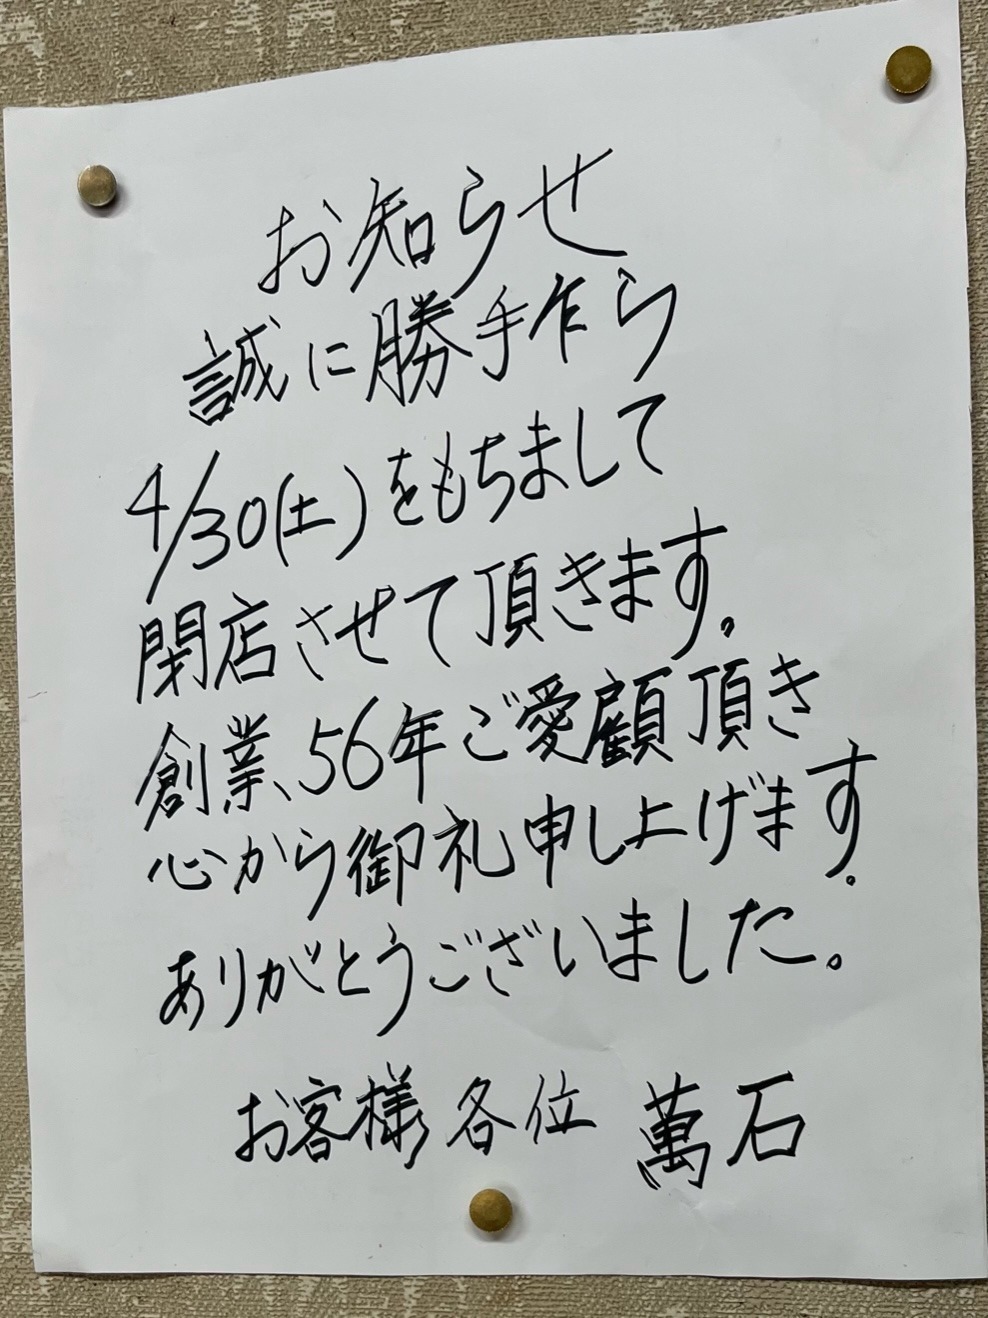 お知らせ
誠に勝手乍ら
4/30(土)をもちまして
閉店させて頂きます。
創業、56年ご愛顧頂き
心から御礼申し上げます。
ありがとうございました。
お客様各位 萬石